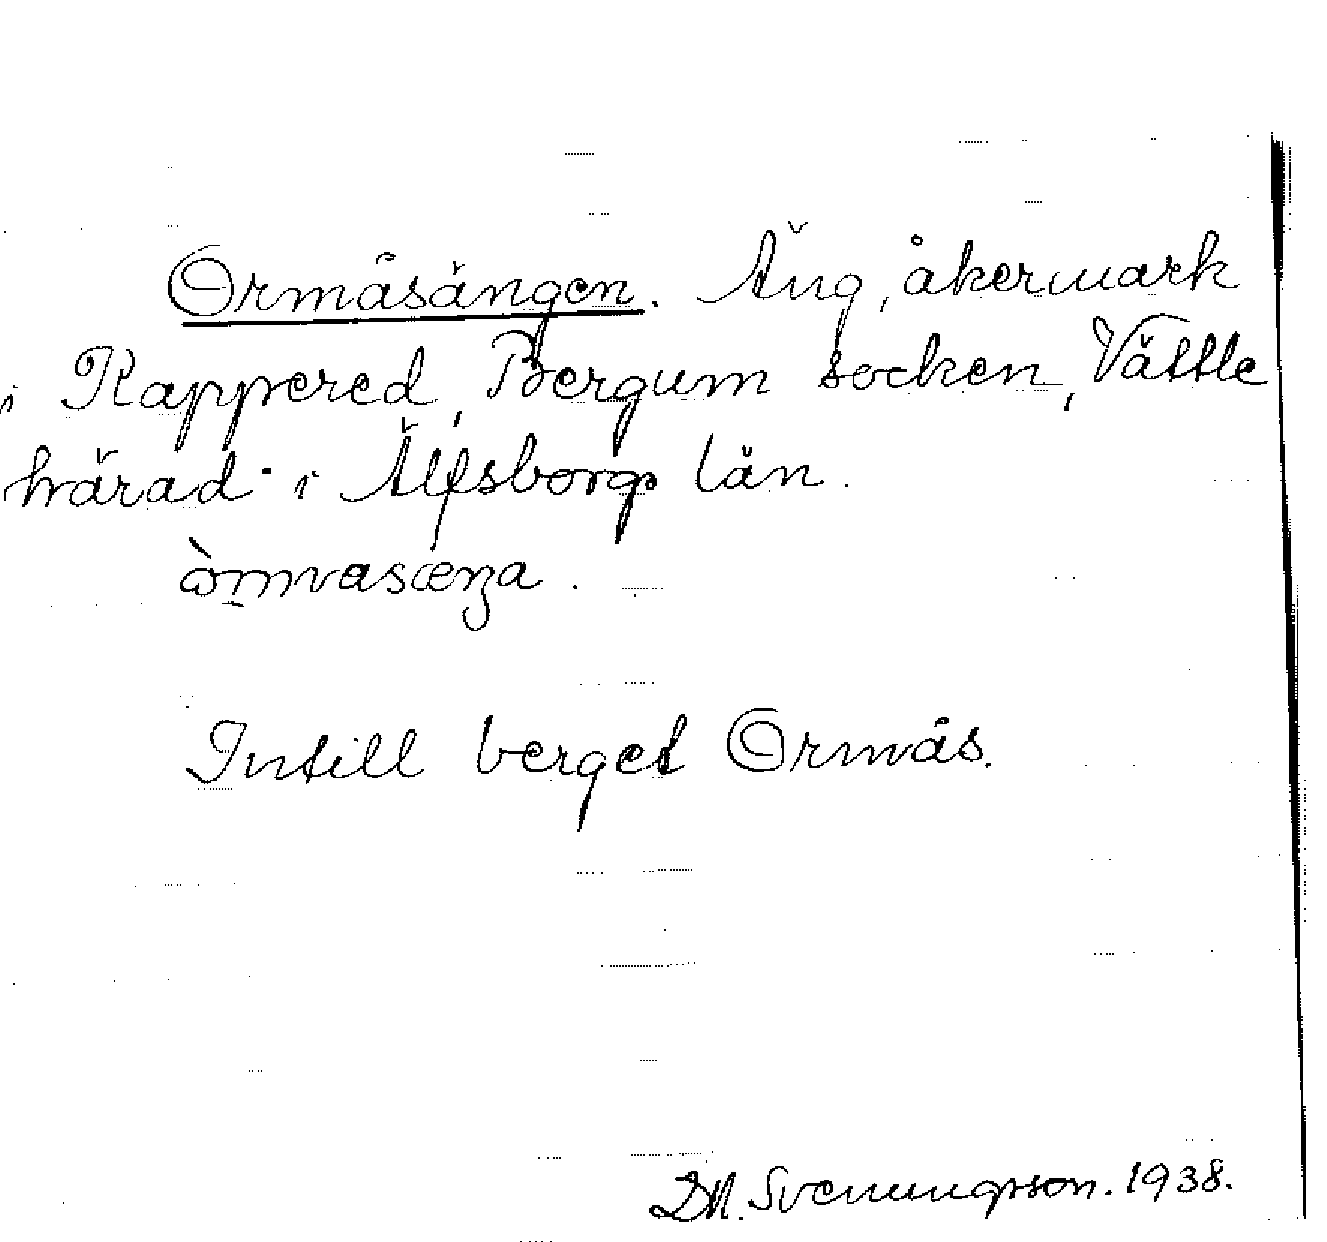 Ormåsängen. Äng, åkermark
i Rappered, Bergum socken, Vättle
härad i Älfsborgs län.
Intill berget Ormås.
D.N. Svenningsson. 1938.